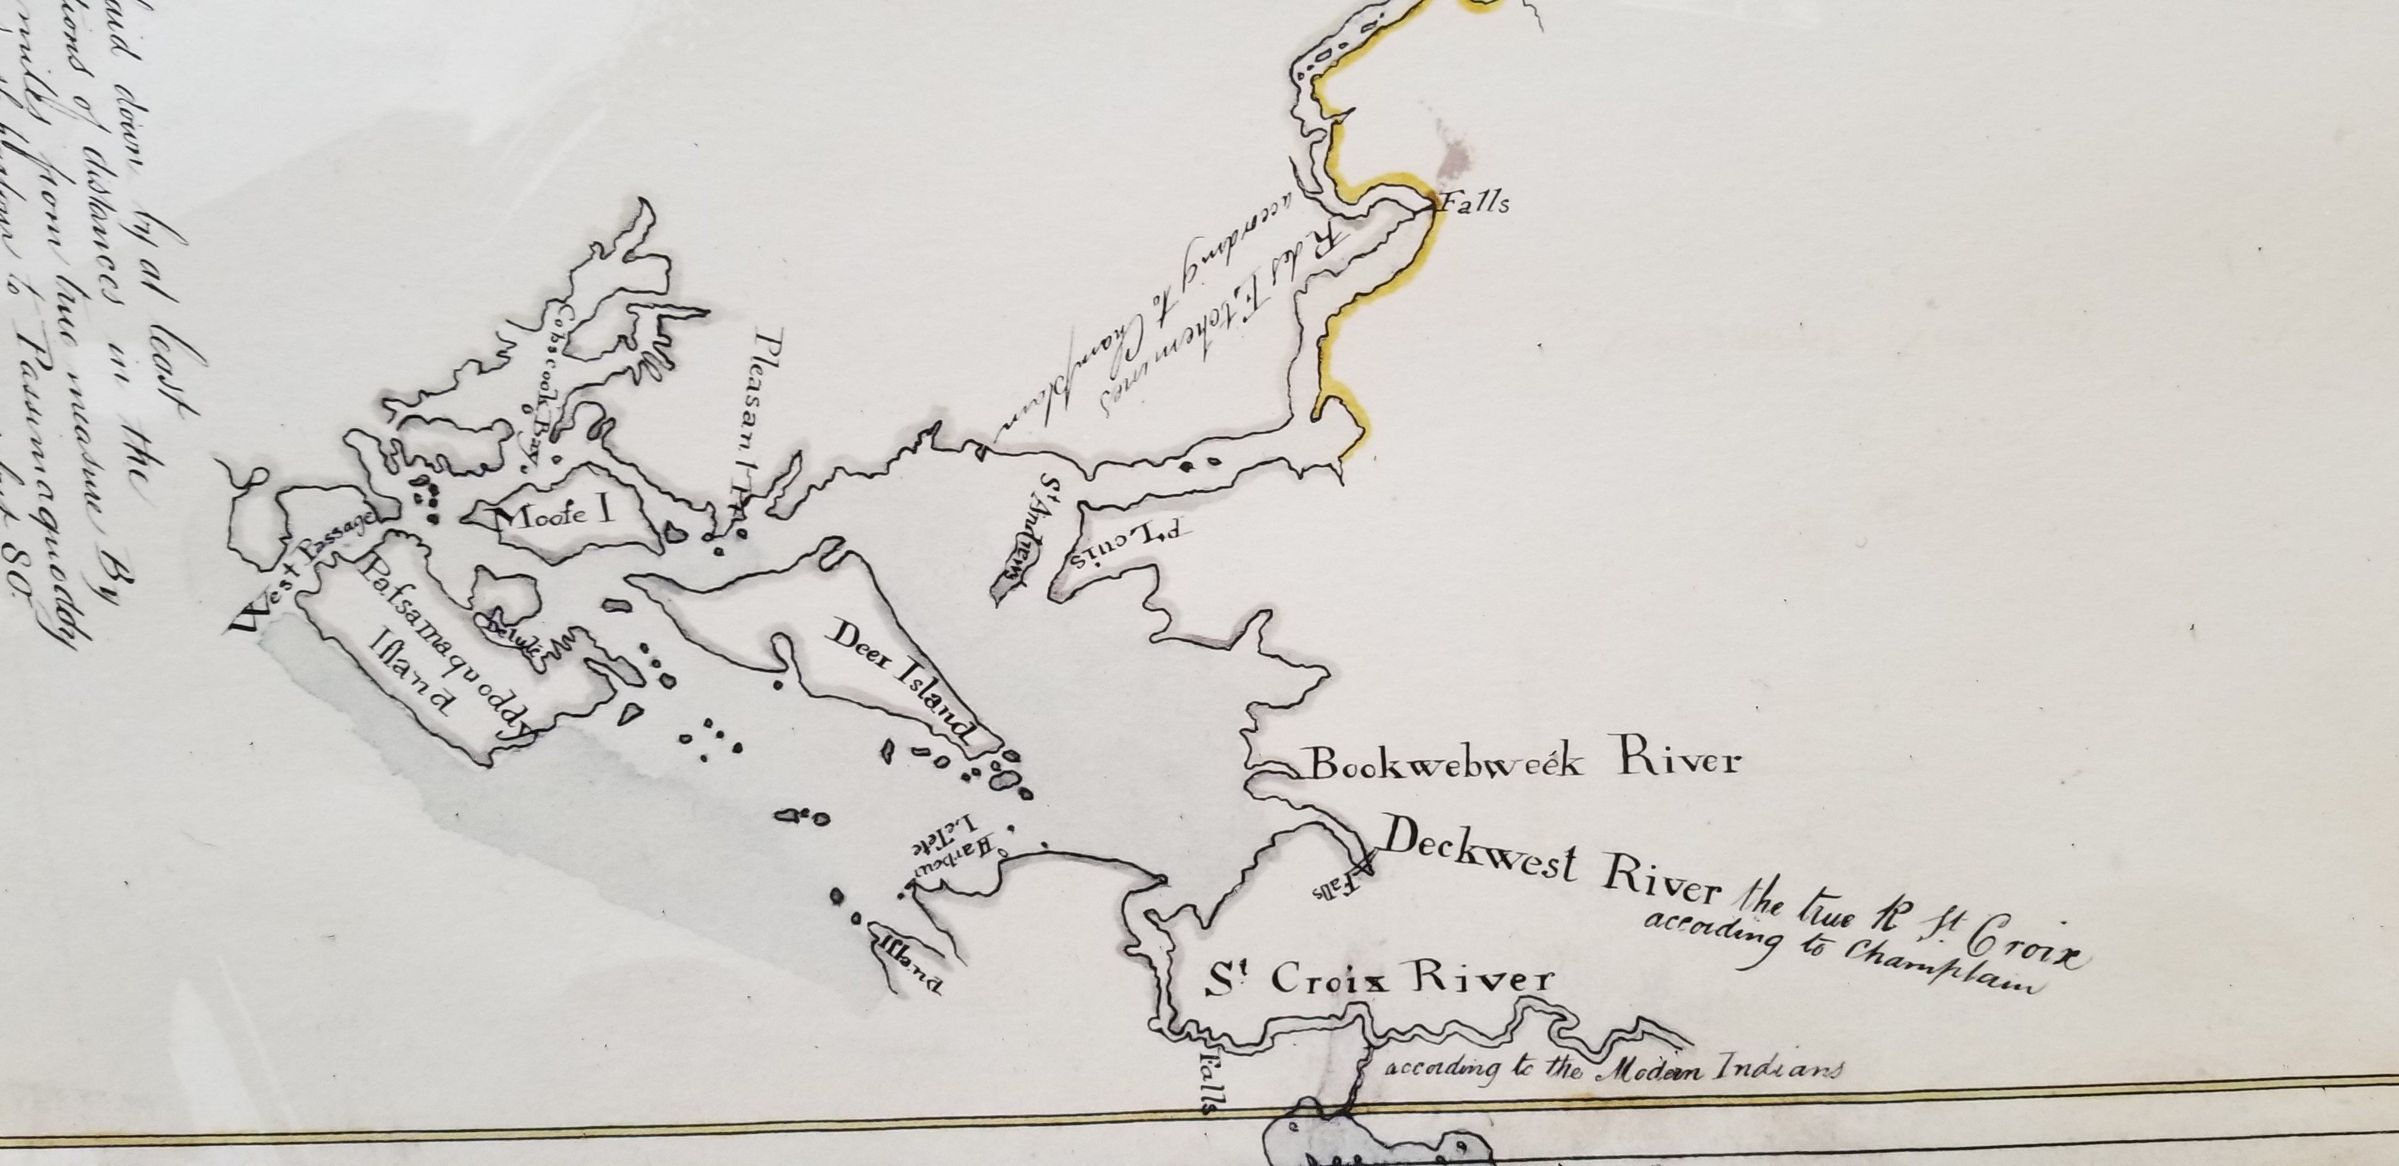 laid down by at least
tions of distances in the
miles from true measure By
to Passamaquoddy
80.
Falls
R des Etchemines
according to Champlain
Cobscook Bay
Pleasant Pt
Moose I
West Passage
Passamaquoddy
Island
Deer Island
St Andrews
Pt Louis
Harbour
LeTete
Island
Bookwebweék River
Deckwest River the true R St Croix
according to Champlain
Falls
St Croix River
according to the Modern Indians
Falls